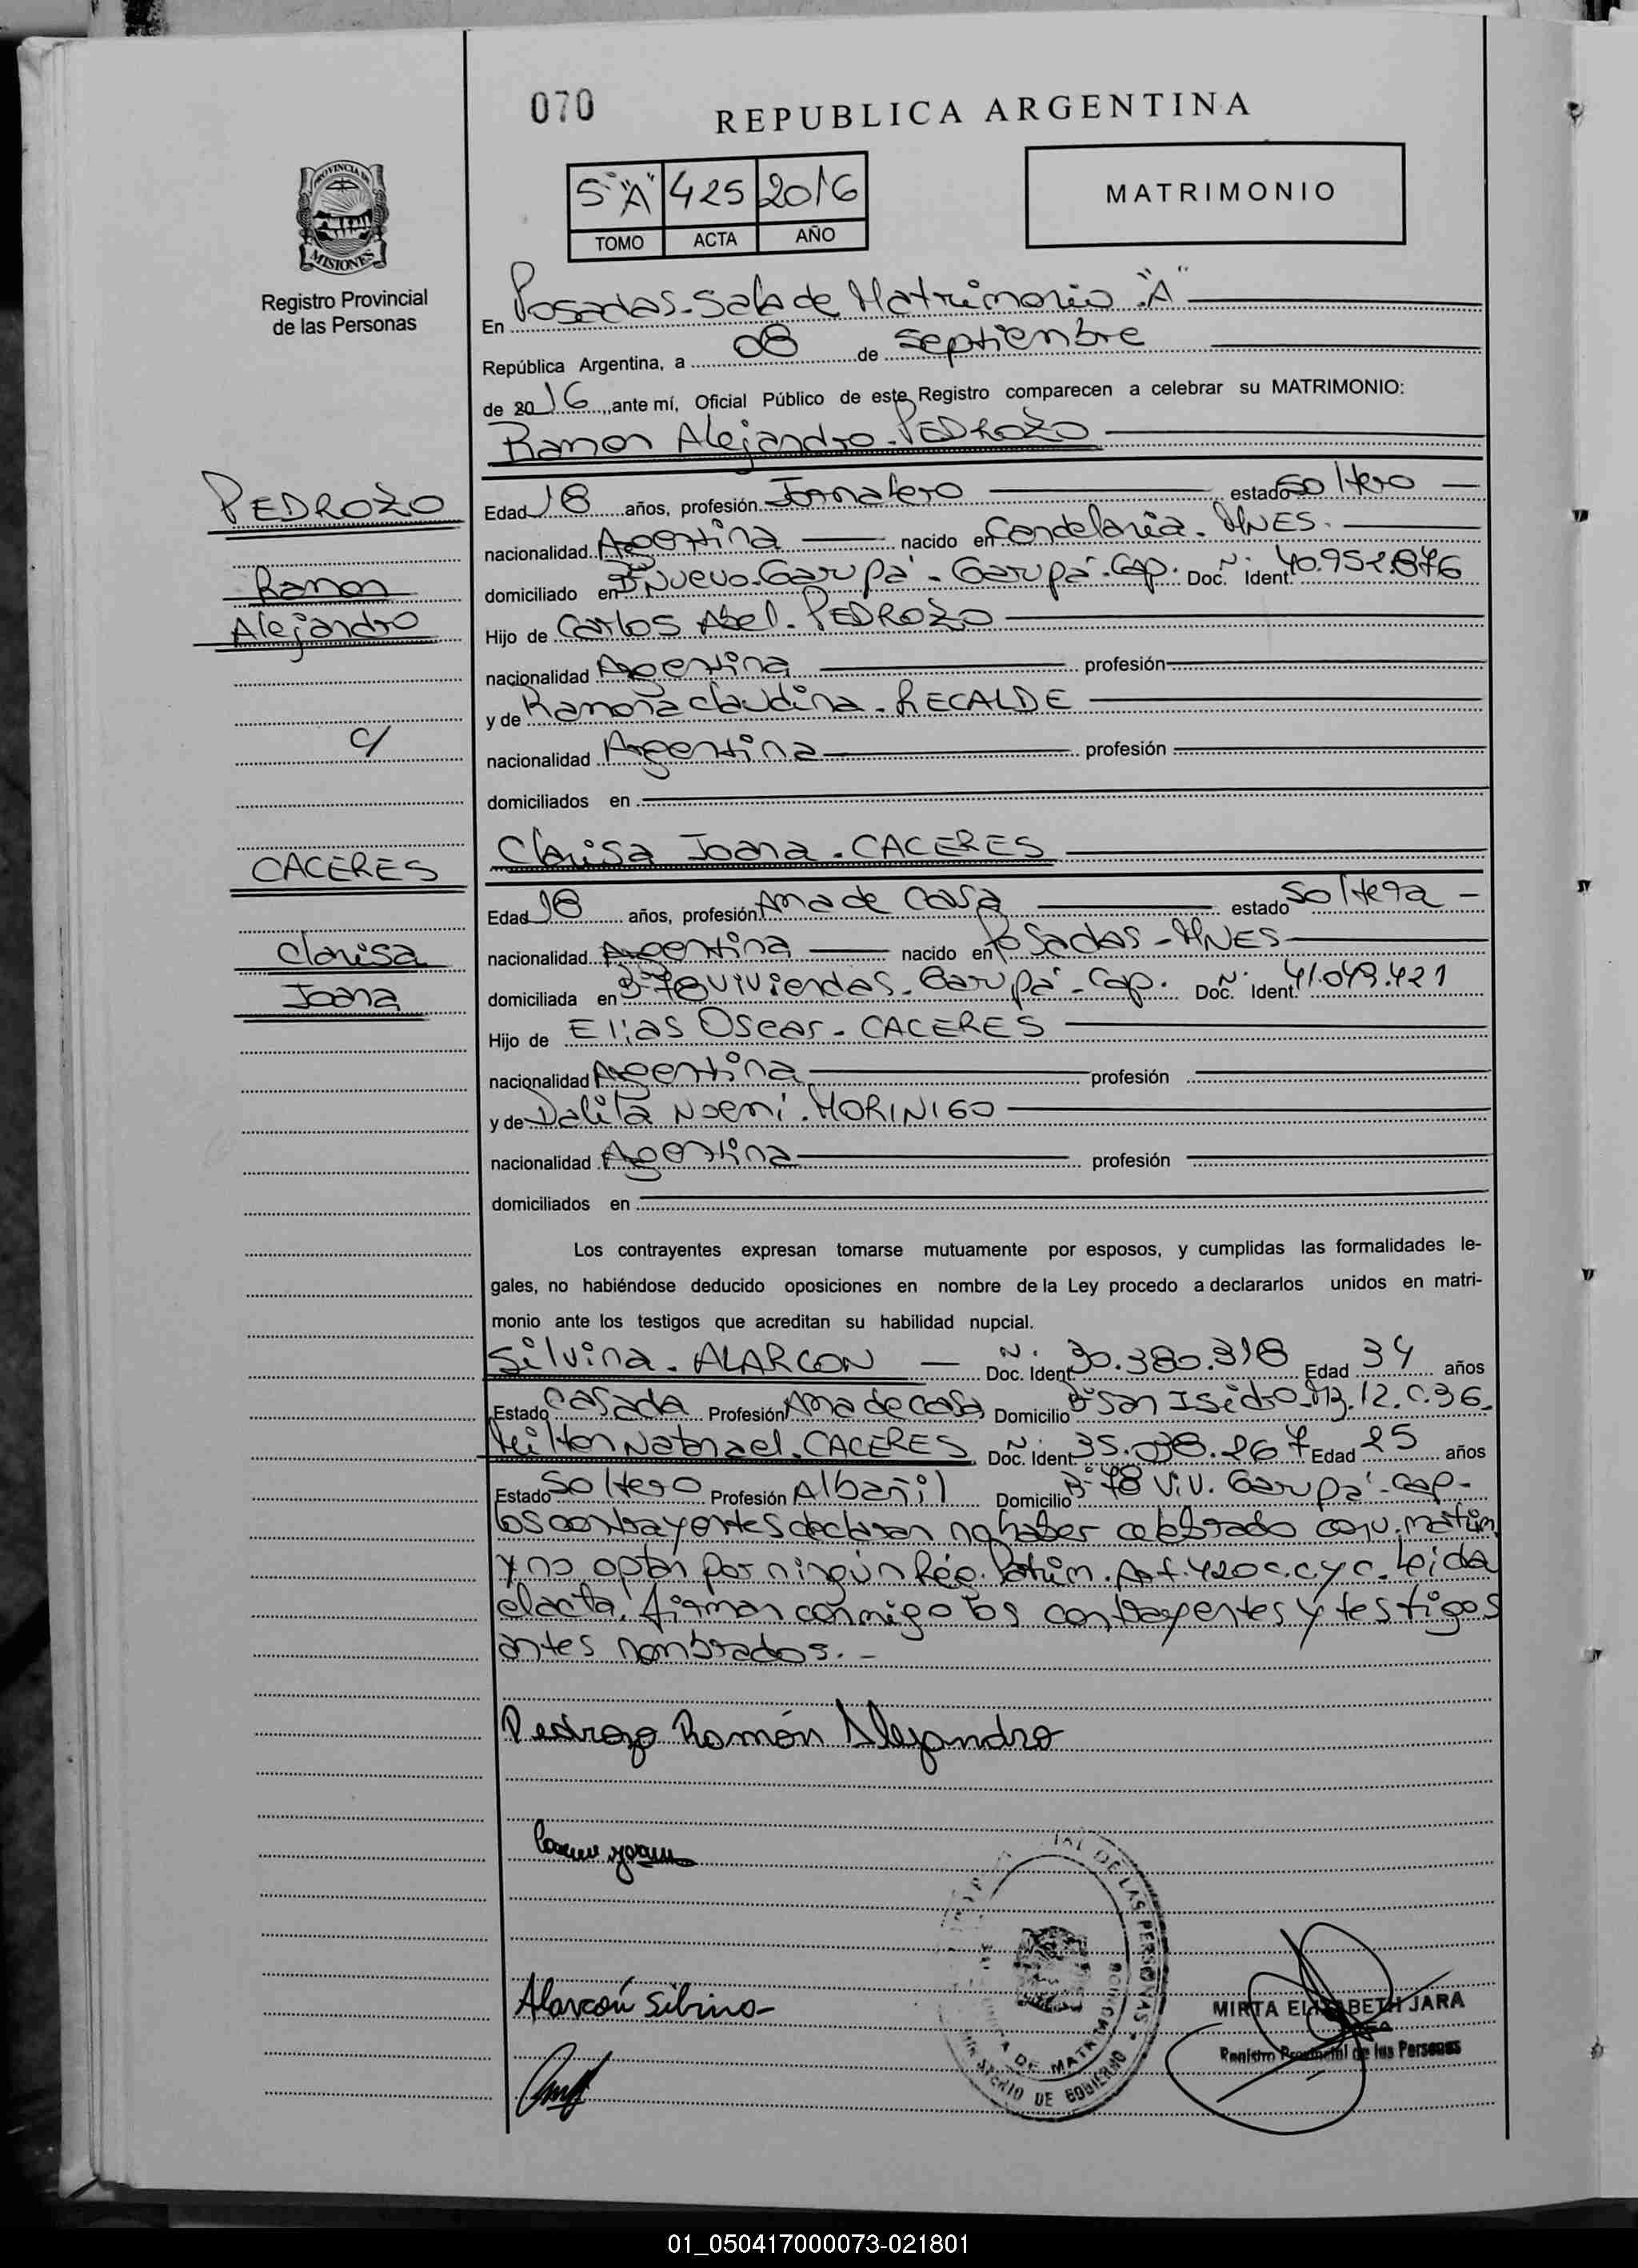 070
REPUBLICA ARGENTINA
PROVINCIA DE
MISIONES
Registro Provincial
de las Personas
5º "A" 425 2016
TOMO ACTA AÑO
MATRIMONIO
En Posadas-Sala de Matrimonio "A"
República Argentina, a 08 de Septiembre
de 2016, ante mí, Oficial Público de este Registro comparecen a celebrar su MATRIMONIO:
Ramon Alejandro. PEDROZO
PEDROZO
Ramon
Alejandro
c/
CACERES
Clarisa
Joana
Edad 18 años, profesión Jornalero estado Soltero
nacionalidad Argentina nacido en Candelaria. MNES.
domiciliado en Bº Nuevo-Garupá - Garupá-Cap. Doc. Nº Ident. 40.952.876
Hijo de Carlos Abel. PEDROZO
nacionalidad Argentina profesión
y de Ramona Claudina. RECALDE
nacionalidad Argentina profesión
domiciliados en
Clarisa Joana. CACERES
Edad 18 años, profesión Ama de Casa estado Soltera
nacionalidad Argentina nacido en Posadas-MNES
domiciliada en Bº 78 viviendas-Garupá-Cap. Doc. Nº Ident. 41.049.421
Hijo de Elias Oscar - CACERES
nacionalidad Argentina profesión
y de Dalila Noemi. MORINIGO
nacionalidad Argentina profesión
domiciliados en
Los contrayentes expresan tomarse mutuamente por esposos, y cumplidas las formalidades le-
gales, no habiéndose deducido oposiciones en nombre de la Ley procedo a declararlos unidos en matri-
monio ante los testigos que acreditan su habilidad nupcial.
Silvina. ALARCON Doc. Nº Ident. 30.380.318 Edad 34 años
Estado Casada Profesión Ama de casa Domicilio Bº San Isidro-Mz.12.C.36.
Milton Natanael. CACERES Doc. Nº Ident. 35.038.267 Edad 25 años
Estado Soltero Profesión Albañil Domicilio Bº 78 Viv. Garupá-Cap-
los contrayentes declaran no haber celebrado conv. matrim
y no optan por ningún Rég. Patrim. Art. 420 c.c y c. Leida
el acta, firman conmigo los contrayentes y testigos
antes nombrados. -
Pedrozo Ramón Alejandro
Alarcón Silvina
DE LAS PERSONAS
DE MATRIMONIO
MINISTERIO DE GOBIERNO
MIRTA ELIZABETH JARA
Registro Provincial de las Personas
01_050417000073-021801